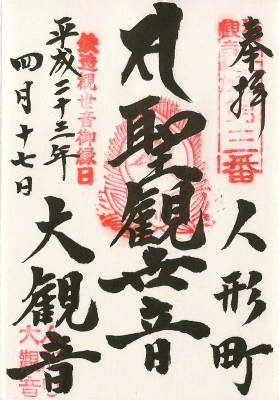 奉拝
三番
人形町
聖観世音
鉄造観世音御縁日
平成二十三年
四月十七日
大観音
大観音